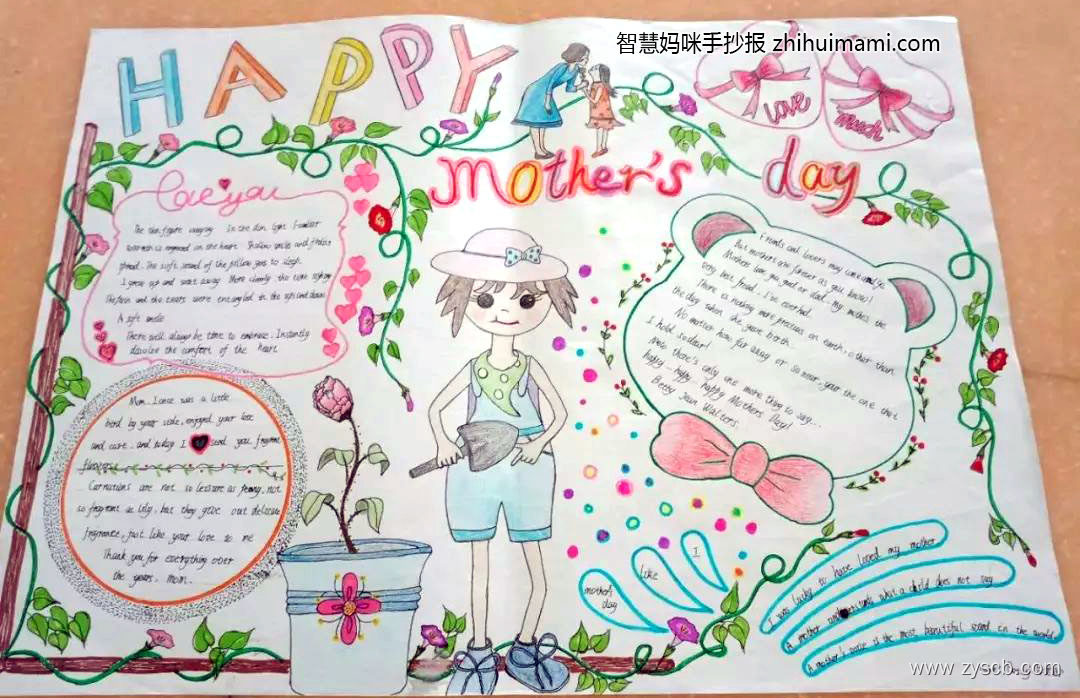 智慧妈咪手抄报 zhihuimami.com
HAPPY
Love
Much
Mother's day
Love you
The thin figure In the dim light Familiar
warmth is engraved in the heart. Shallow smile and
spread. The soft sound of the pillow goes to sleep.
I grew up and went away. More clearly the time
The and the tears were entangled in the
A soft smile
There will always be time to embrace. Instantly
dissolve the comfort of the heart
Friends and lovers may come and go
But mothers are forever as you know!
Mothers love you, good or bad, my mother the
Very best friend, I've ever had.
There is nothing more precious on earth, other than
the day when she gave birth.
No matter how far away or so near, your the one that
I hold so dear!
Now there's only one more thing to say...
happy... happy... happy Mothers Day!
Betty Jean Walters.
Mom, I once was a little
bird by your side, enjoyed your love
and care, and today I send you fragrant
flowers
Carnations are not so leisure as peony, not
so fragrant as lily, but they give out delicate
fragrance, just like your love to me
Thank you for everything over
the years, Mom.
I
like
mother's
day
I was lucky to have loved my mother
A mother understands what a child does not say
A mother's voice is the most beautiful sound in the world
www.zyscb.com